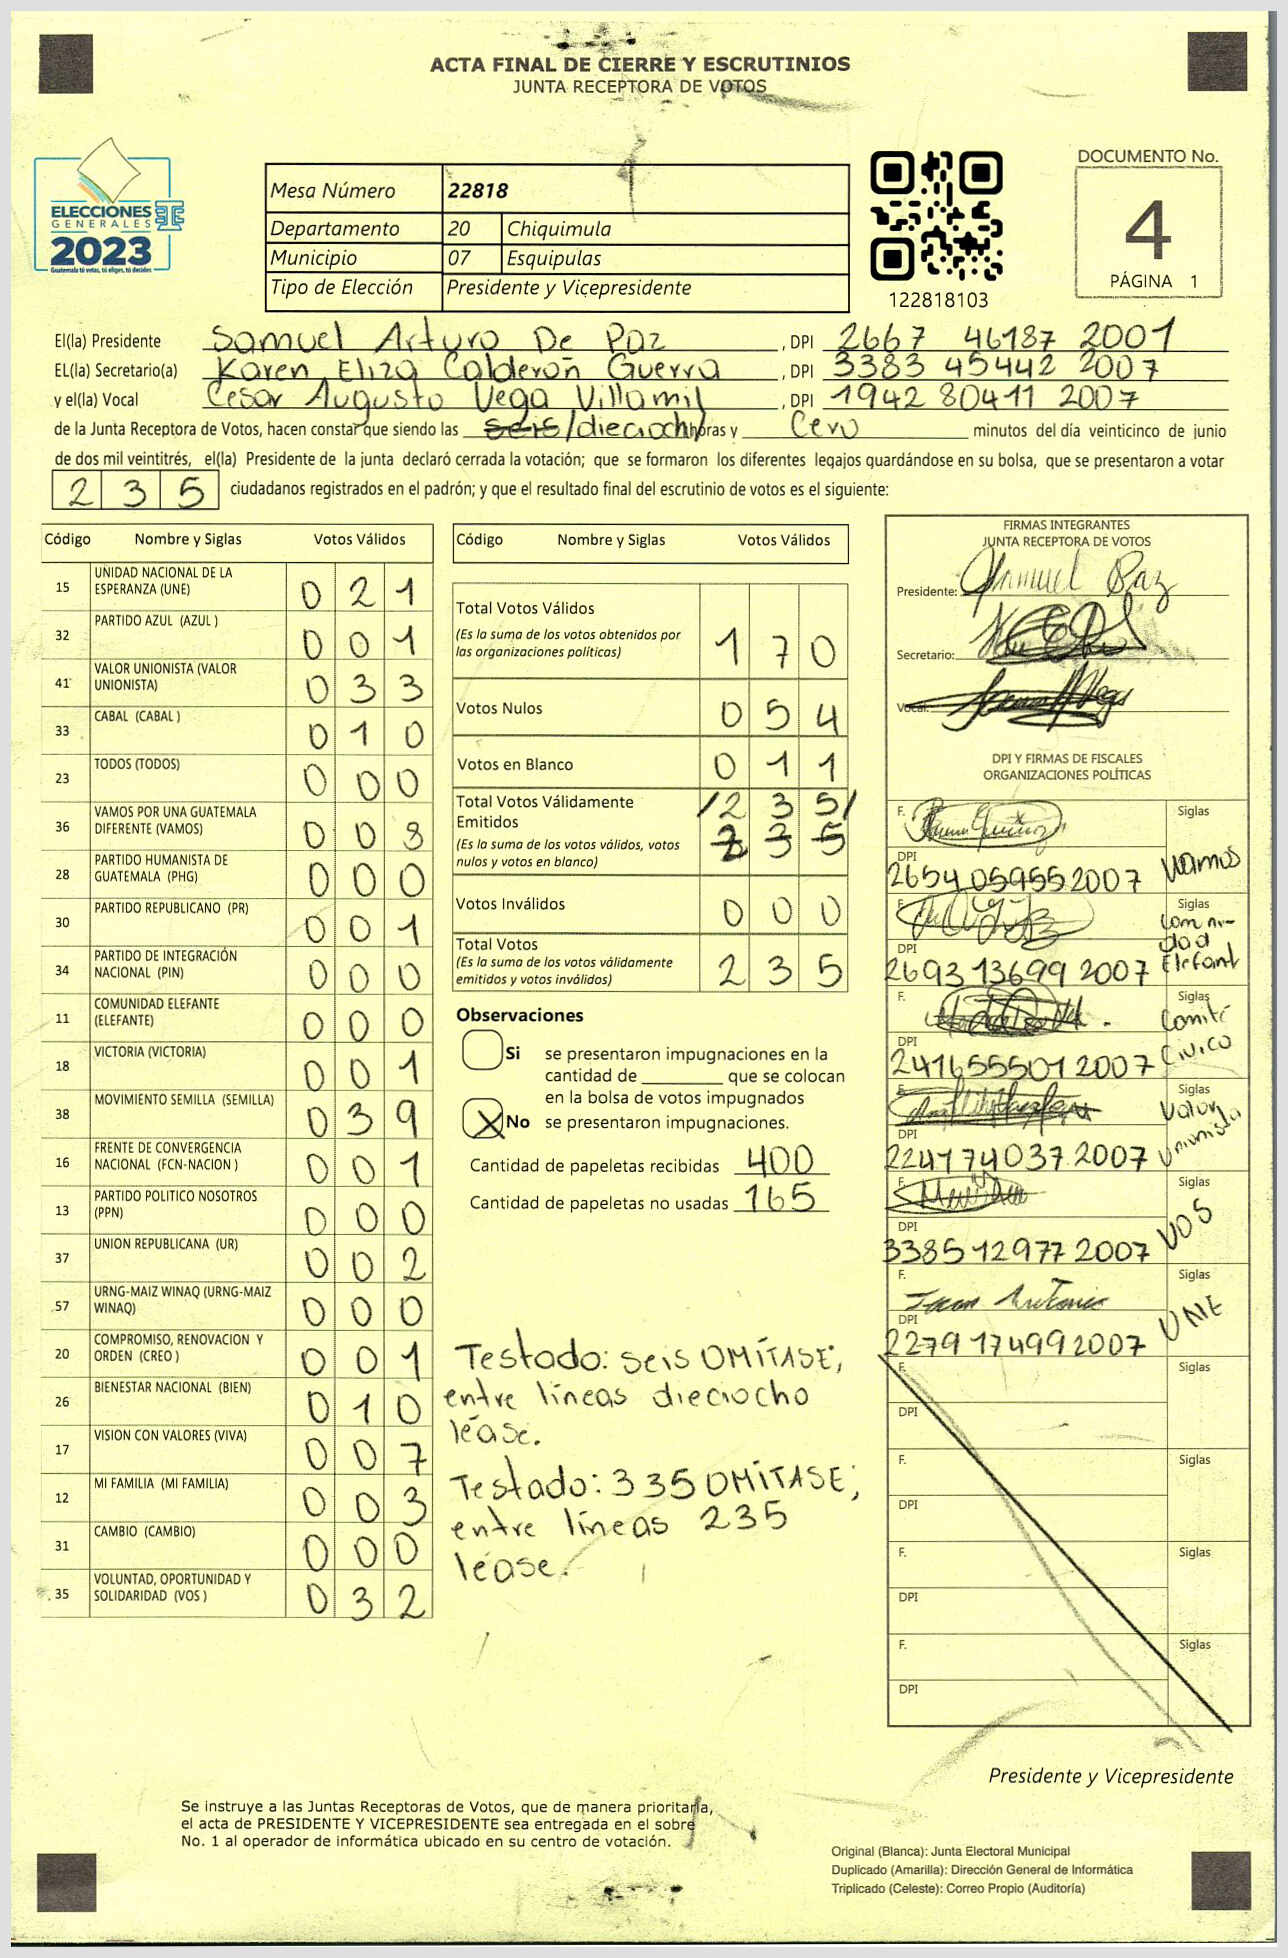 ACTA FINAL DE CIERRE Y ESCRUTINIOS
JUNTA RECEPTORA DE VOTOS
ELECCIONES
GENERALES
2023
Guatemala tú votas, tú eliges, tú decides
Mesa Número 22818
Departamento 20 Chiquimula
Municipio 07 Esquipulas
Tipo de Elección Presidente y Vicepresidente
122818103
DOCUMENTO No.
4
PÁGINA 1
El(la) Presidente Samuel Arturo De Paz , DPI 2667 46187 2001
EL(la) Secretario(a) Karen Eliza Calderón Guerra , DPI 3383 45442 2007
y el(la) Vocal Cesar Augusto Vega Villamil , DPI 1942 80411 2007
de la Junta Receptora de Votos, hacen constar que siendo las seis/dieciocho/ horas y Cero minutos del día veinticinco de junio
de dos mil veintitrés, el(la) Presidente de la junta declaró cerrada la votación; que se formaron los diferentes legajos guardándose en su bolsa, que se presentaron a votar
235 ciudadanos registrados en el padrón; y que el resultado final del escrutinio de votos es el siguiente:
Código Nombre y Siglas Votos Válidos
15 UNIDAD NACIONAL DE LA ESPERANZA (UNE) 0 2 1
32 PARTIDO AZUL (AZUL ) 0 0 1
41 VALOR UNIONISTA (VALOR UNIONISTA) 0 3 3
33 CABAL (CABAL ) 0 1 0
23 TODOS (TODOS) 0 0 0
36 VAMOS POR UNA GUATEMALA DIFERENTE (VAMOS) 0 0 8
28 PARTIDO HUMANISTA DE GUATEMALA (PHG) 0 0 0
30 PARTIDO REPUBLICANO (PR) 0 0 1
34 PARTIDO DE INTEGRACIÓN NACIONAL (PIN) 0 0 0
11 COMUNIDAD ELEFANTE (ELEFANTE) 0 0 0
18 VICTORIA (VICTORIA) 0 0 1
38 MOVIMIENTO SEMILLA (SEMILLA) 0 3 9
16 FRENTE DE CONVERGENCIA NACIONAL (FCN-NACION ) 0 0 1
13 PARTIDO POLITICO NOSOTROS (PPN) 0 0 0
37 UNION REPUBLICANA (UR) 0 0 2
57 URNG-MAIZ WINAQ (URNG-MAIZ WINAQ) 0 0 0
20 COMPROMISO, RENOVACION Y ORDEN (CREO ) 0 0 1
26 BIENESTAR NACIONAL (BIEN) 0 1 0
17 VISION CON VALORES (VIVA) 0 0 7
12 MI FAMILIA (MI FAMILIA) 0 0 3
31 CAMBIO (CAMBIO) 0 0 0
35 VOLUNTAD, OPORTUNIDAD Y SOLIDARIDAD (VOS ) 0 3 2
Código Nombre y Siglas Votos Válidos
Total Votos Válidos 1 7 0
(Es la suma de los votos obtenidos por
las organizaciones políticas)
Votos Nulos 0 5 4
Votos en Blanco 0 1 1
Total Votos Válidamente /2 3 5/
Emitidos 3 3 5
(Es la suma de los votos válidos, votos
nulos y votos en blanco)
Votos Inválidos 0 0 0
Total Votos 2 3 5
(Es la suma de los votos válidamente
emitidos y votos inválidos)
Observaciones
Si se presentaron impugnaciones en la
cantidad de ________ que se colocan
en la bolsa de votos impugnados
X No se presentaron impugnaciones.
Cantidad de papeletas recibidas 400
Cantidad de papeletas no usadas 165
Testado: seis OMÍTASE;
entre líneas dieciocho
léase.
Testado: 335 OMÍTASE;
entre líneas 235
léase.
FIRMAS INTEGRANTES
JUNTA RECEPTORA DE VOTOS
Presidente: Samuel Paz
Secretario:
Vocal:
DPI Y FIRMAS DE FISCALES
ORGANIZACIONES POLÍTICAS
F. Siglas
DPI
2654 05955 2007 Vamos
F. Siglas
DPI
2693 13699 2007 Comunidad Elefant
F. Siglas
DPI
2416 55501 2007 Comité Cívico
F. Siglas
DPI
2241 74037 2007 Valor Unionista
F. Siglas
DPI
3385 12977 2007 VOS
F. Siglas
DPI
2279 17499 2007 UNE
F. Siglas
DPI
F. Siglas
DPI
F. Siglas
DPI
F. Siglas
DPI
Presidente y Vicepresidente
Se instruye a las Juntas Receptoras de Votos, que de manera prioritaria,
el acta de PRESIDENTE Y VICEPRESIDENTE sea entregada en el sobre
No. 1 al operador de informática ubicado en su centro de votación.
Original (Blanca): Junta Electoral Municipal
Duplicado (Amarilla): Dirección General de Informática
Triplicado (Celeste): Correo Propio (Auditoría)